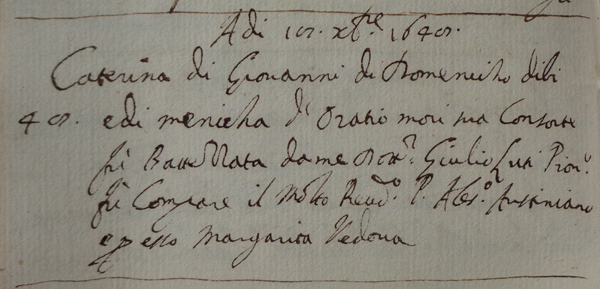 A di 10. xbre 1640.
Caterina di Giovanni di Domenicho dibi
40. e di menicha d' Oratio mori sua Consorte
fù Battezzata da me Dott.r Giulio Luti Pior.e
fù Compare il Molto Reud.o P. Ales.o
e per esso Margarita Vedova